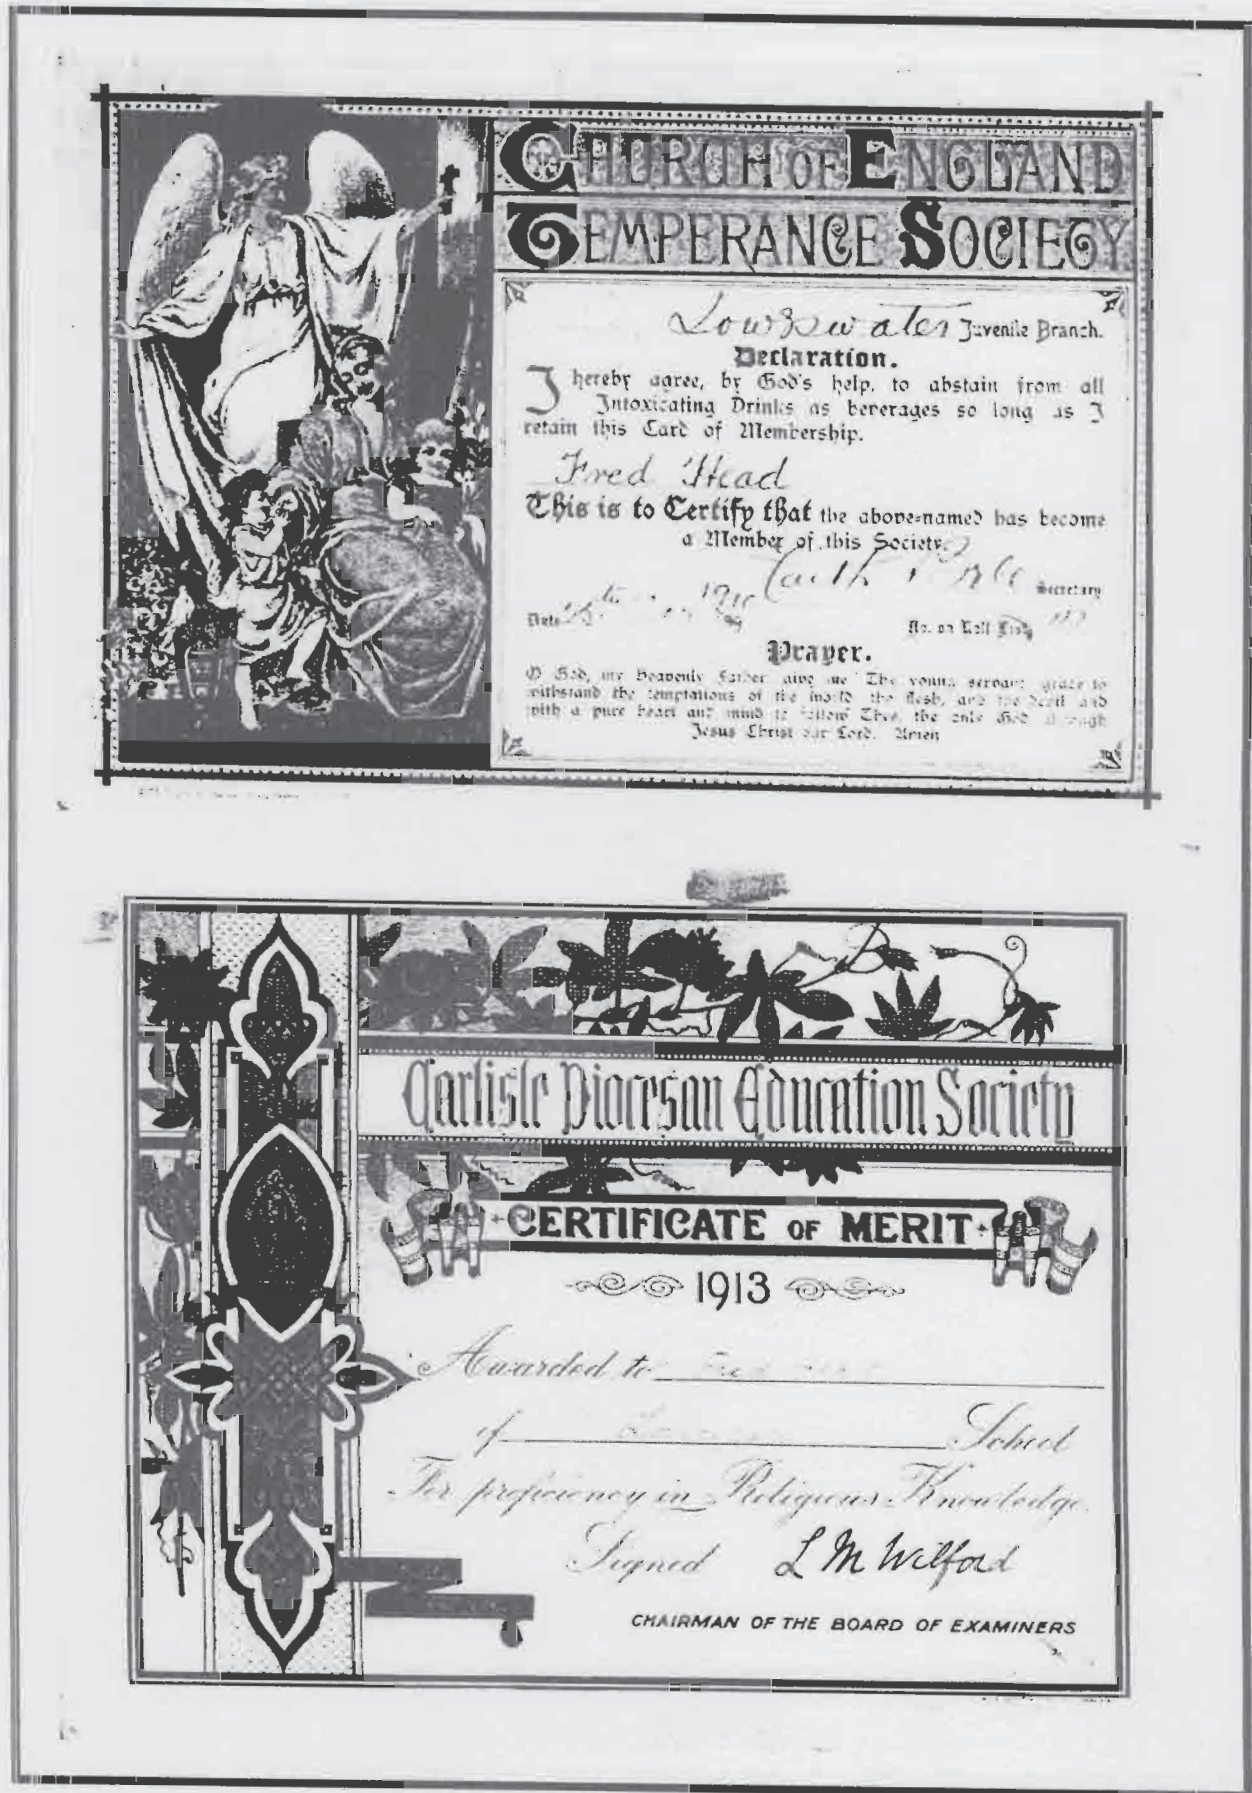 CHURCH OF ENGLAND
TEMPERANCE SOCIETY
Lowswater Juvenile Branch.
Declaration.
I hereby agree, by God's help, to abstain from all
Intoxicating Drinks as beverages so long as I
retain this Card of Membership.
Fred Head
This is to Certify that the above=named has become
a Member of this Society.
Secretary
Date 1910
No. on Roll
Prayer.
O God, my heavenly Father give me Thy young servant grace to
withstand the temptations of the world the flesh, and the devil and
with a pure heart and mind to follow Thee, the only God through
Jesus Christ our Lord. Amen
Carlisle Diocesan Education Society
CERTIFICATE OF MERIT
1913
Awarded to
of School
For proficiency in Religious Knowledge
Signed L M Wilford
CHAIRMAN OF THE BOARD OF EXAMINERS